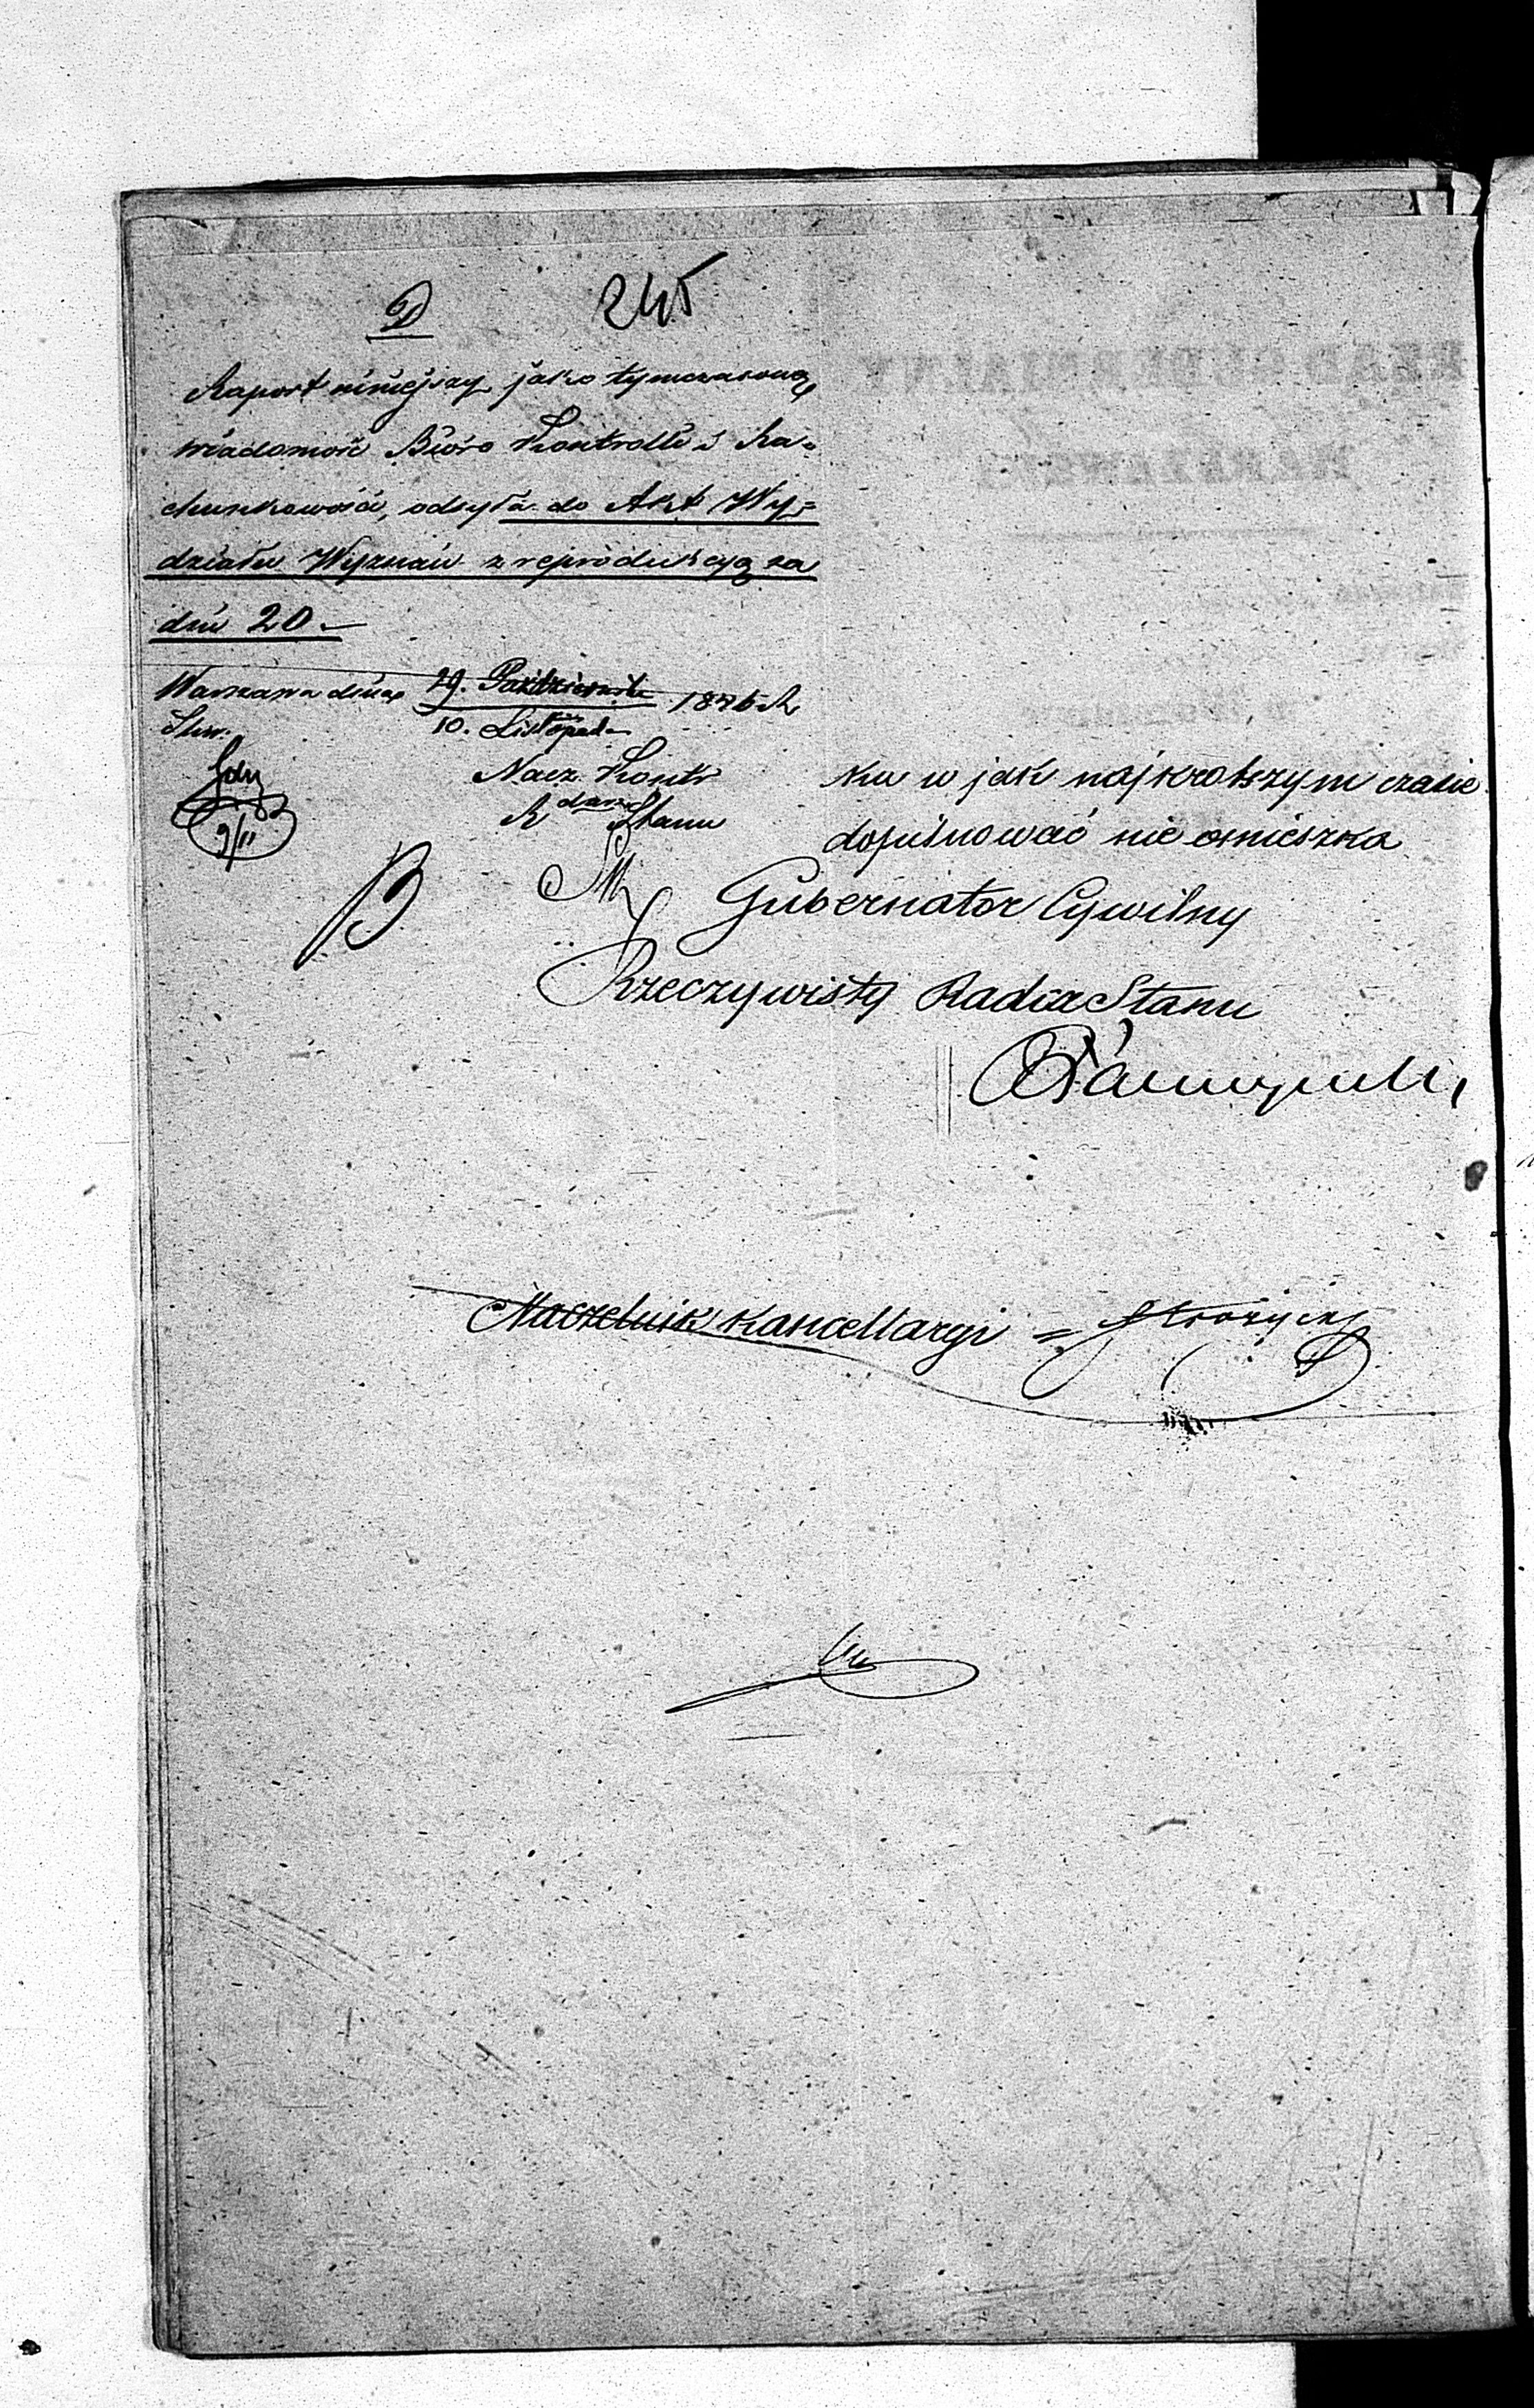 D
245
Raport niniejszy jako tymczasową
wiadomość Bióro Kontrolli i Ra=
chunkowości, odsyła do Akt Wy=
działu Wyznań z reprodukcyą za
dni 20.
Warszawa dnia 29. Października 1846 R
10. Listopada
Nacz. Kontr
R Stanu
9/11
ku w jak najkrotszym czasie
dopilnować nie omieszka
Gubernator Cywilny
Rzeczywisty Radca Stanu
Naczelnik Kancellaryi =